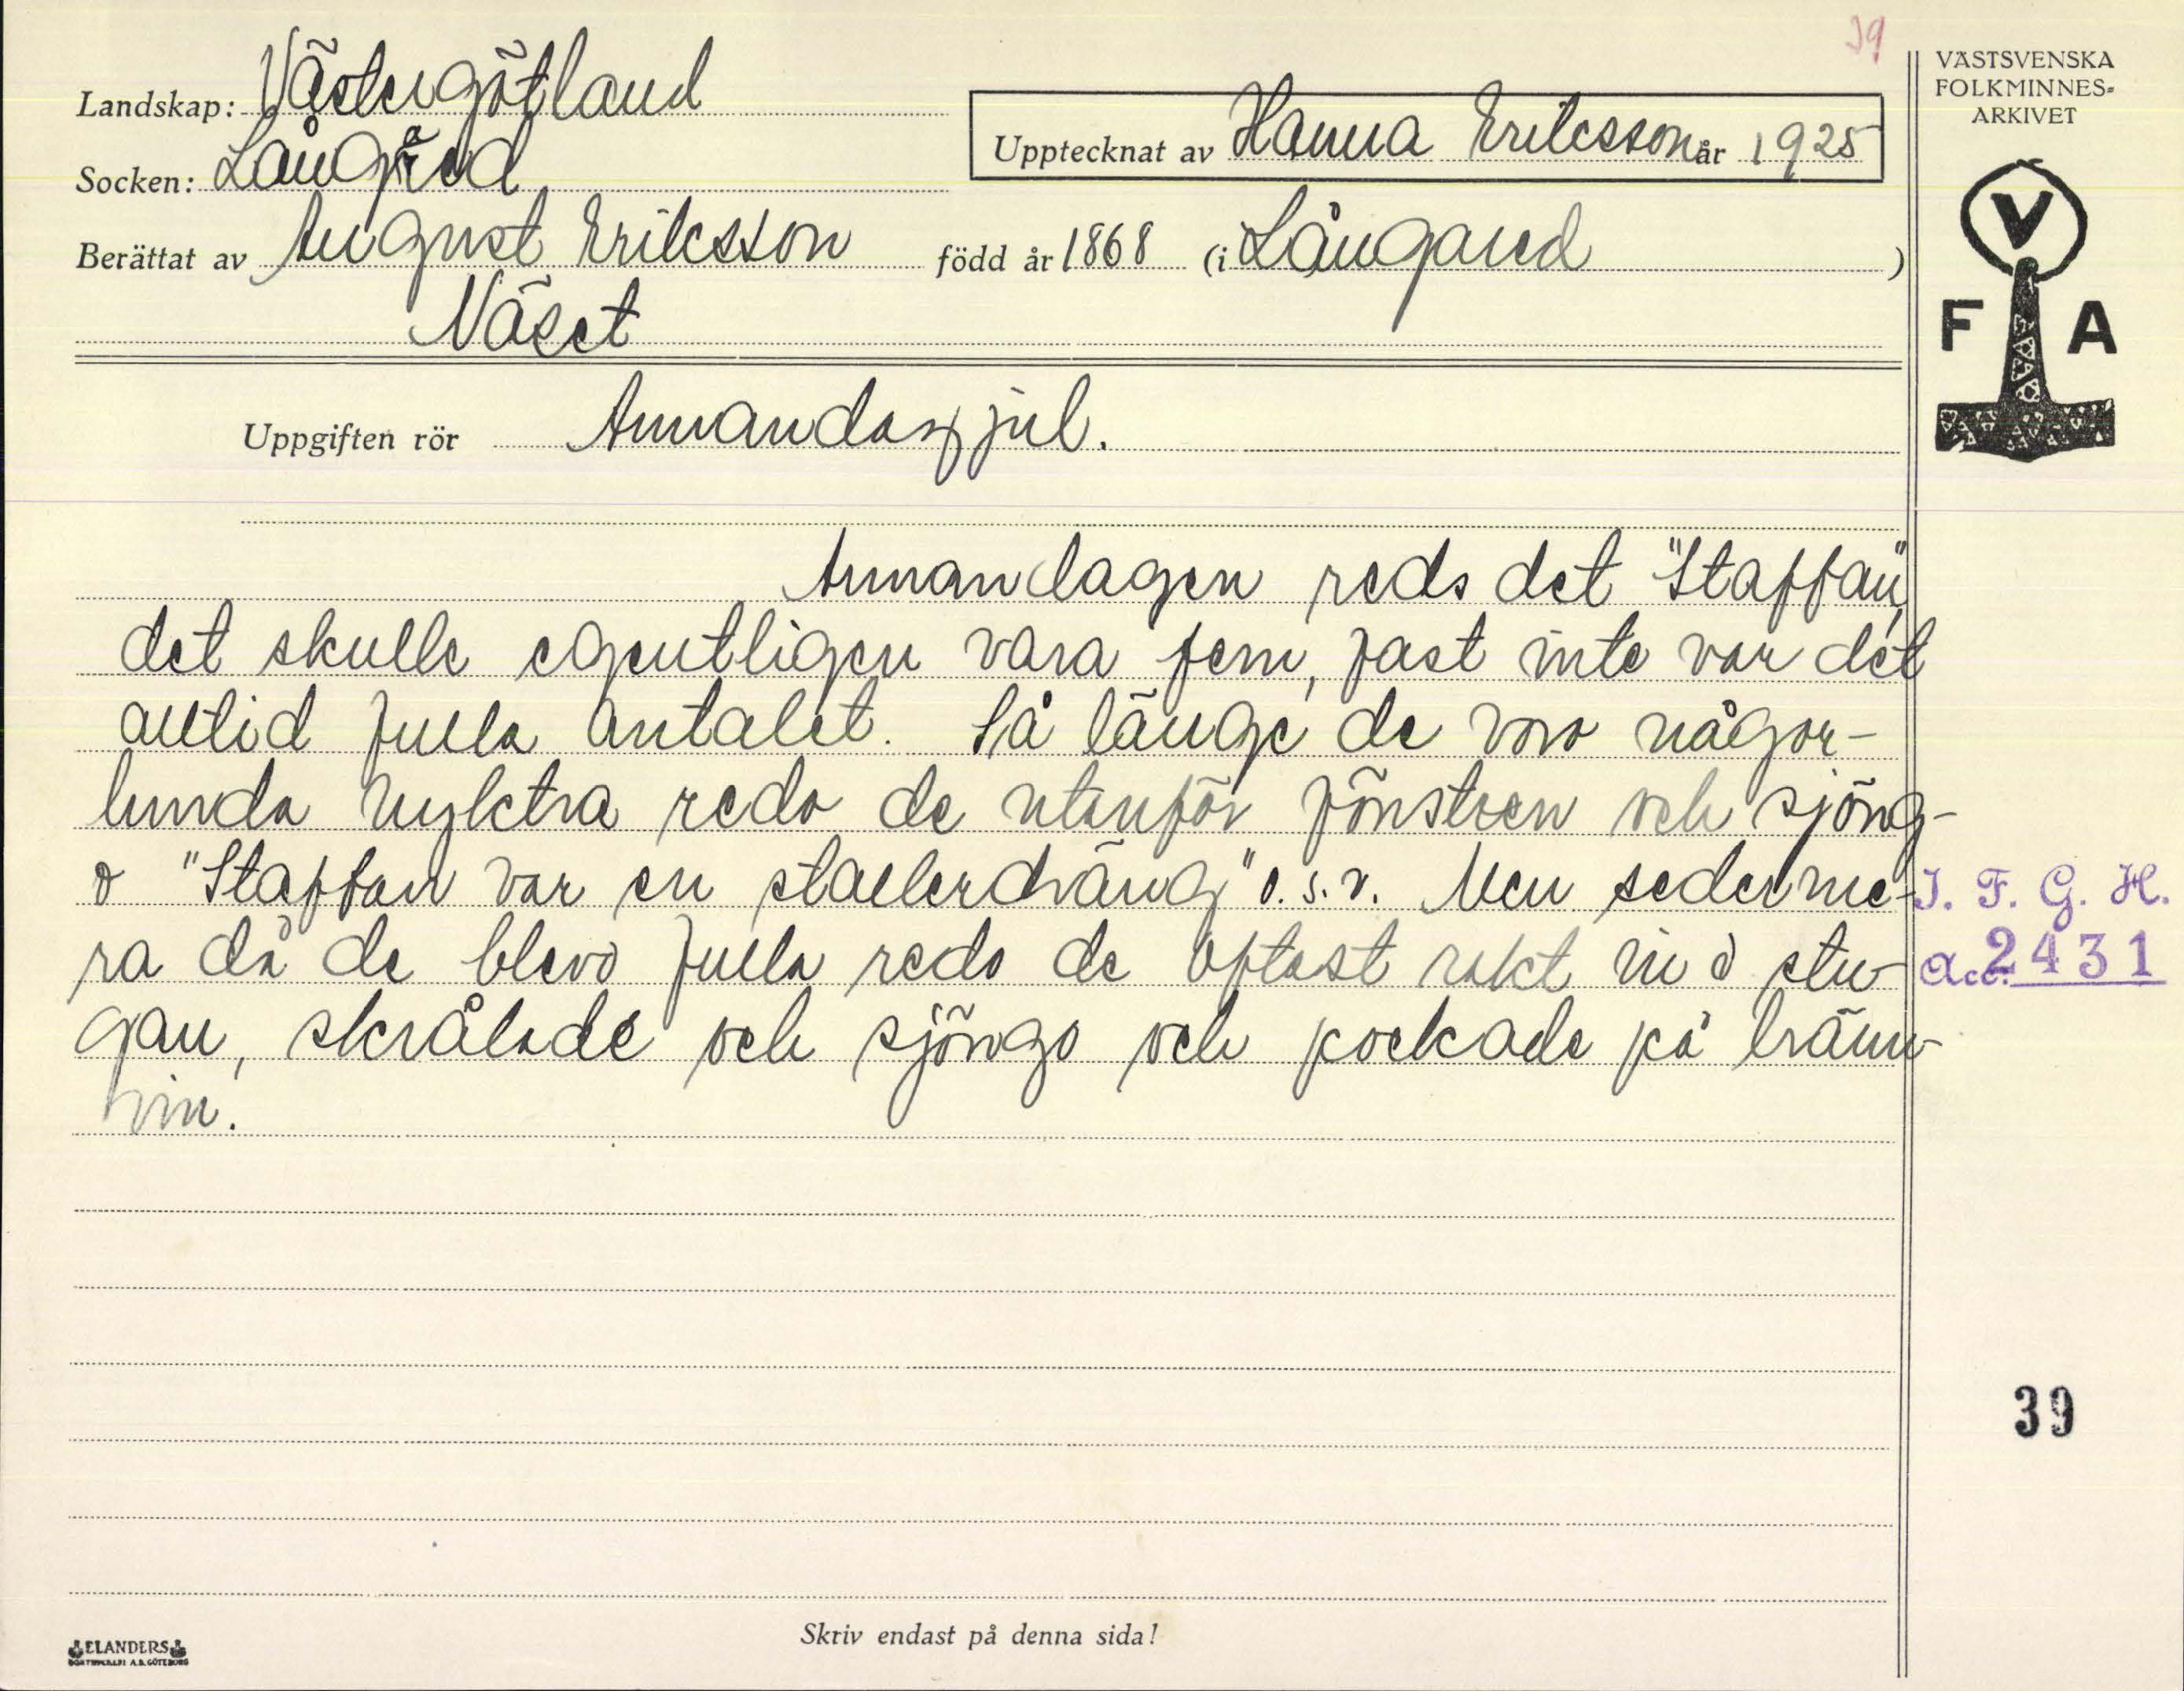 39
Landskap: Västergötland
Socken: Långared
Upptecknat av Hanna Eriksson år 1925
Berättat av August Eriksson född år 1868 (i Långared)
Näset
VÄSTSVENSKA
FOLKMINNES-
ARKIVET
V
F A
Uppgiften rör Annandag jul.
Annandagen reds det "Staffan",
det skulle egentligen vara fem, fast inte var det
alltid fulla antalet. Så länge de voro någor-
lunda nyktra redo de utanför fönstren och sjöng-
o "Staffan var en stallerdräng" o.s.v. Men sederme-
ra då de blevo fulla redo de oftast rakt in i stu-
gan, skrålade och sjöngo och pockade på bränn-
vin.
I. F. G. H.
Acc. 2431
39
Skriv endast på denna sida!
ELANDERS
BOKTRYCKERI A.B. GÖTEBORG